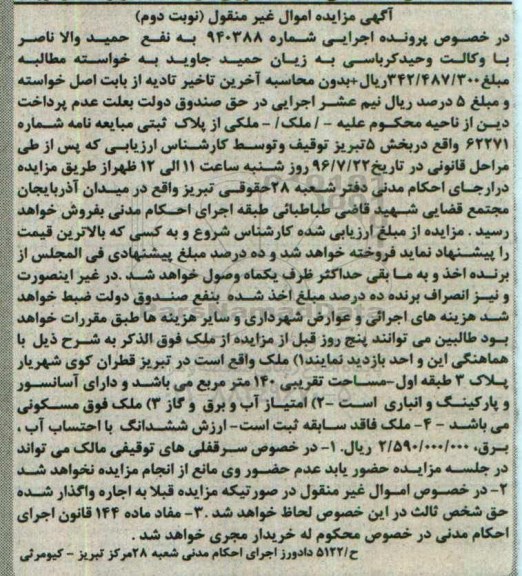 آگهی مزایده اموال غیر منقول (نوبت دوم)
در خصوص پرونده اجرایی شماره ۹۴۰۳۸۸ به نفع حمید والا ناصر
با وکالت وحیدکرباسی به زیان حمید جاوید به خواسته مطالبه
مبلغ۳۴۲/۴۸۷/۳۰۰ریال+بدون محاسبه آخرین تاخیر تادیه از بابت اصل خواسته
و مبلغ ۵ درصد ریال نیم عشر اجرایی در حق صندوق دولت بعلت عدم پرداخت
دین از ناحیه محکوم علیه - / ملک/ - ملکی از پلاک ثبتی مبایعه نامه شماره
۶۲۲۷۱ واقع دربخش ۵تبریز توقیف وتوسط کارشناس ارزیابی که پس از طی
مراحل قانونی در تاریخ۹۶/۷/۲۲ روز شنبه ساعت ۱۱ الی ۱۲ ظهراز طریق مزایده
دراجرای احکام مدنی دفتر شعبه ۲۸حقوقی تبریز واقع در میدان آذربایجان
مجتمع قضایی شهید قاضی طباطبائی طبقه اجرای احکام مدنی بفروش خواهد
رسید . مزایده از مبلغ ارزیابی شده کارشناس شروع و به کسی که بالاترین قیمت
را پیشنهاد نماید فروخته خواهد شد و ده درصد مبلغ پیشنهادی فی المجلس از
برنده اخذ و به ما بقی حداکثر ظرف یکماه وصول خواهد شد .در غیر اینصورت
و نیز انصراف برنده ده درصد مبلغ اخذ شده بنفع صندوق دولت ضبط خواهد
شد هزینه های اجرائی و عوارض شهرداری و سایر هزینه ها طبق مقررات خواهد
بود طالبین می توانند پنج روز قبل از مزایده از ملک فوق الذکر به شرح ذیل با
هماهنگی این و احد بازدید نمایند۱) ملک واقع است در تبریز قطران کوی شهریار
پلاک ۳ طبقه اول-مساحت تقریبی ۱۴۰ متر مربع می باشد و دارای آسانسور
و پارکینگ و انباری است -۲) امتیاز آب و برق و گاز ۳) ملک فوق مسکونی
می باشد - ۴- ملک فاقد سابقه ثبت است- ارزش ششدانگ با احتساب آب ،
برق، ۲/۵۹۰/۰۰۰/۰۰۰ ریال. ۱- در خصوص سرقفلی های توقیفی مالک می تواند
در جلسه مزایده حضور یابد عدم حضور وی مانع از انجام مزایده نخواهد شد
۲- در خصوص اموال غیر منقول در صورتیکه مزایده قبلا به اجاره واگذار شده
حق شخص ثالث در این خصوص لحاظ خواهد شد .۳- مفاد ماده ۱۴۴ قانون اجرای
احکام مدنی در خصوص محکوم له خریدار مجری خواهد شد .
ح/۵۱۲۲ دادورز اجرای احکام مدنی شعبه ۲۸مرکز تبریز - کیومرثی